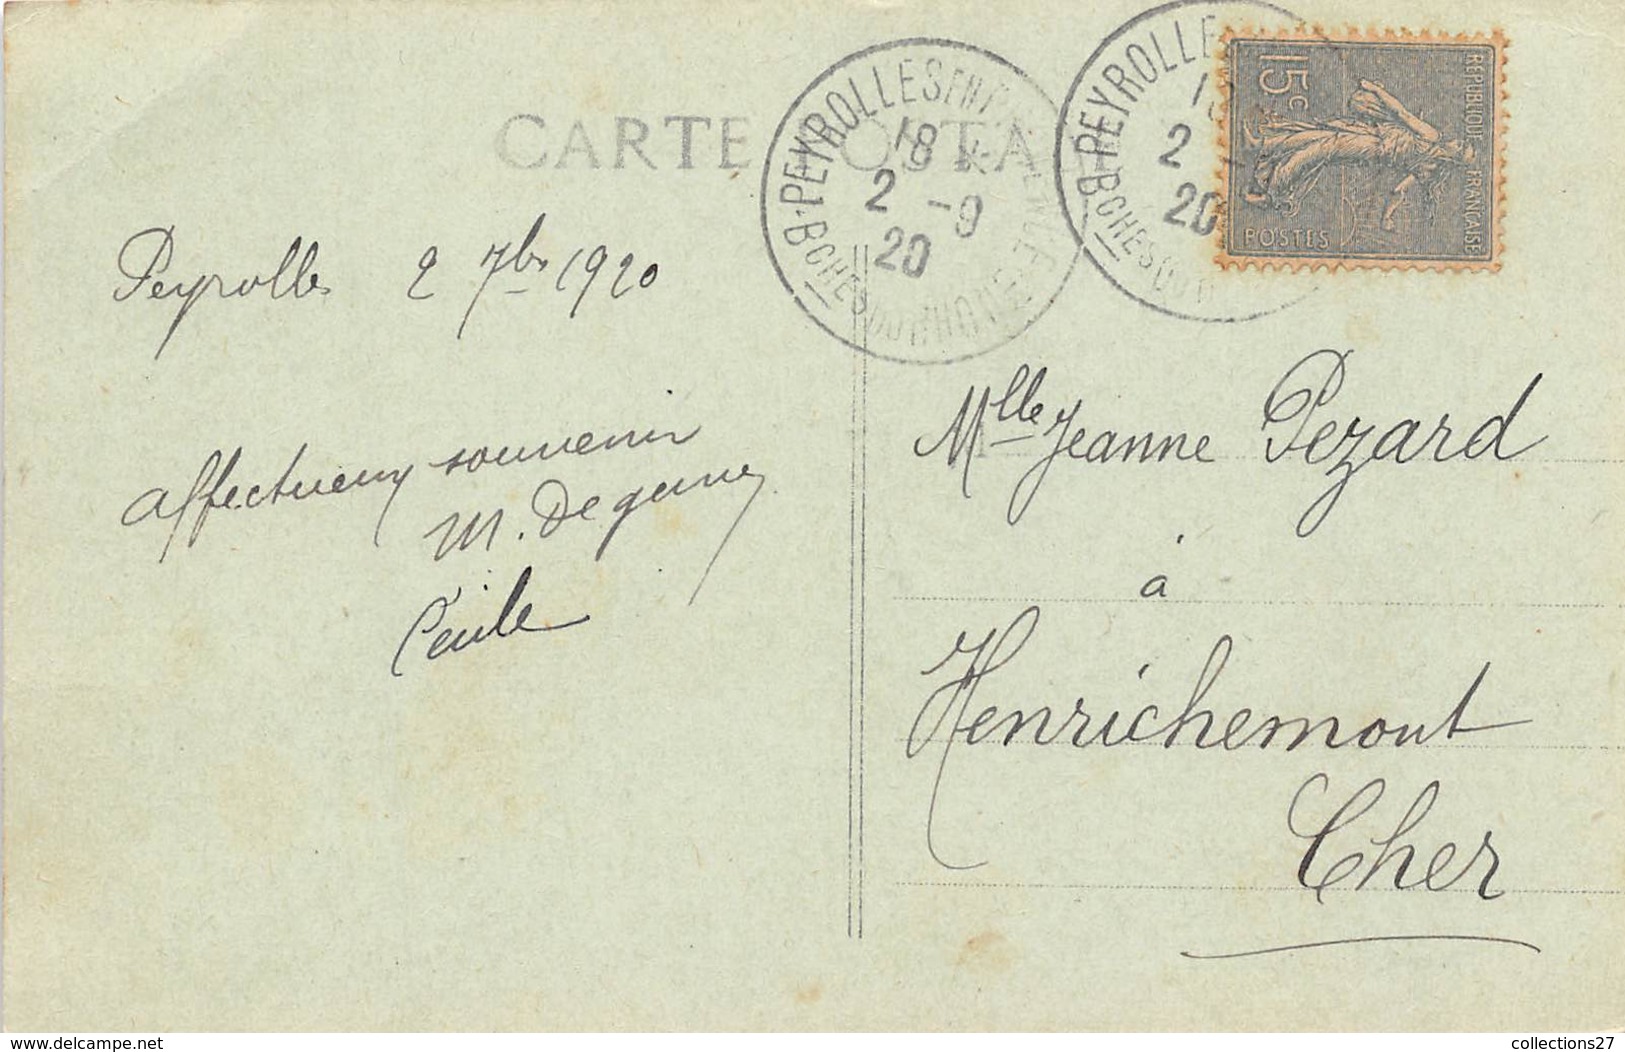 CARTE POSTALE
PEYROLLES EN PROVENCE
18
2 -9
20
BCHES DU RHONE
PEYROLLES
18
2
20
BCHES DU
15c
REPUBLIQUE FRANÇAISE
POSTES
Peyrolles 2 7bre 1920
affectueux souvenir
M.
Cécile
Mlle Jeanne Pezard
à
Henrichemont
Cher
www.delcampe.net
collections27